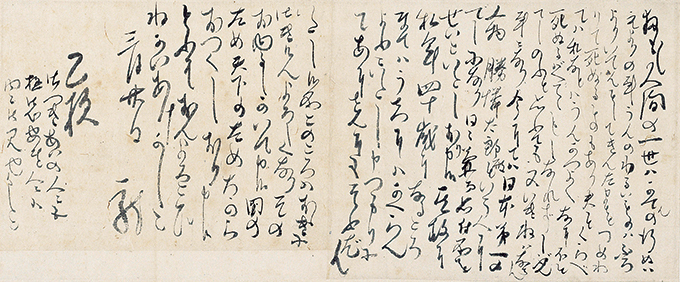 扨も〳〵人間の一世ハがてんの行ぬハ
元よりの事うんのわるいものハふろ
よりいでんとしてきんたまをつめわ
りて死ぬるものもあり夫とくらべ
てハ私などハうんがつよくなにほど
死ぬるバへでゝもしなれずじぶん
でしのふと思ふても又いきねバならん
事ニなり今にてハ日本第一の
人物勝憐太郎殿という人にでしに
なり日々兼而思付所を
せいといたしおり申候其故に
私年四十歳になるころ
までハうちにハかへらん
よふニいたし申つもりに
てあにさんにもそふだん
いたし候所このごろハおゝきに
御きげんよろしくなりその
おゆるしがいで申候国の
ため天下のためちから
おつくしおり申候
どふぞおんよろこび
ねがいあげかしこ
三月廿日 龍
乙様
御つきあいの人ニも
極御心安き人ニハ
内々御見せかしこ